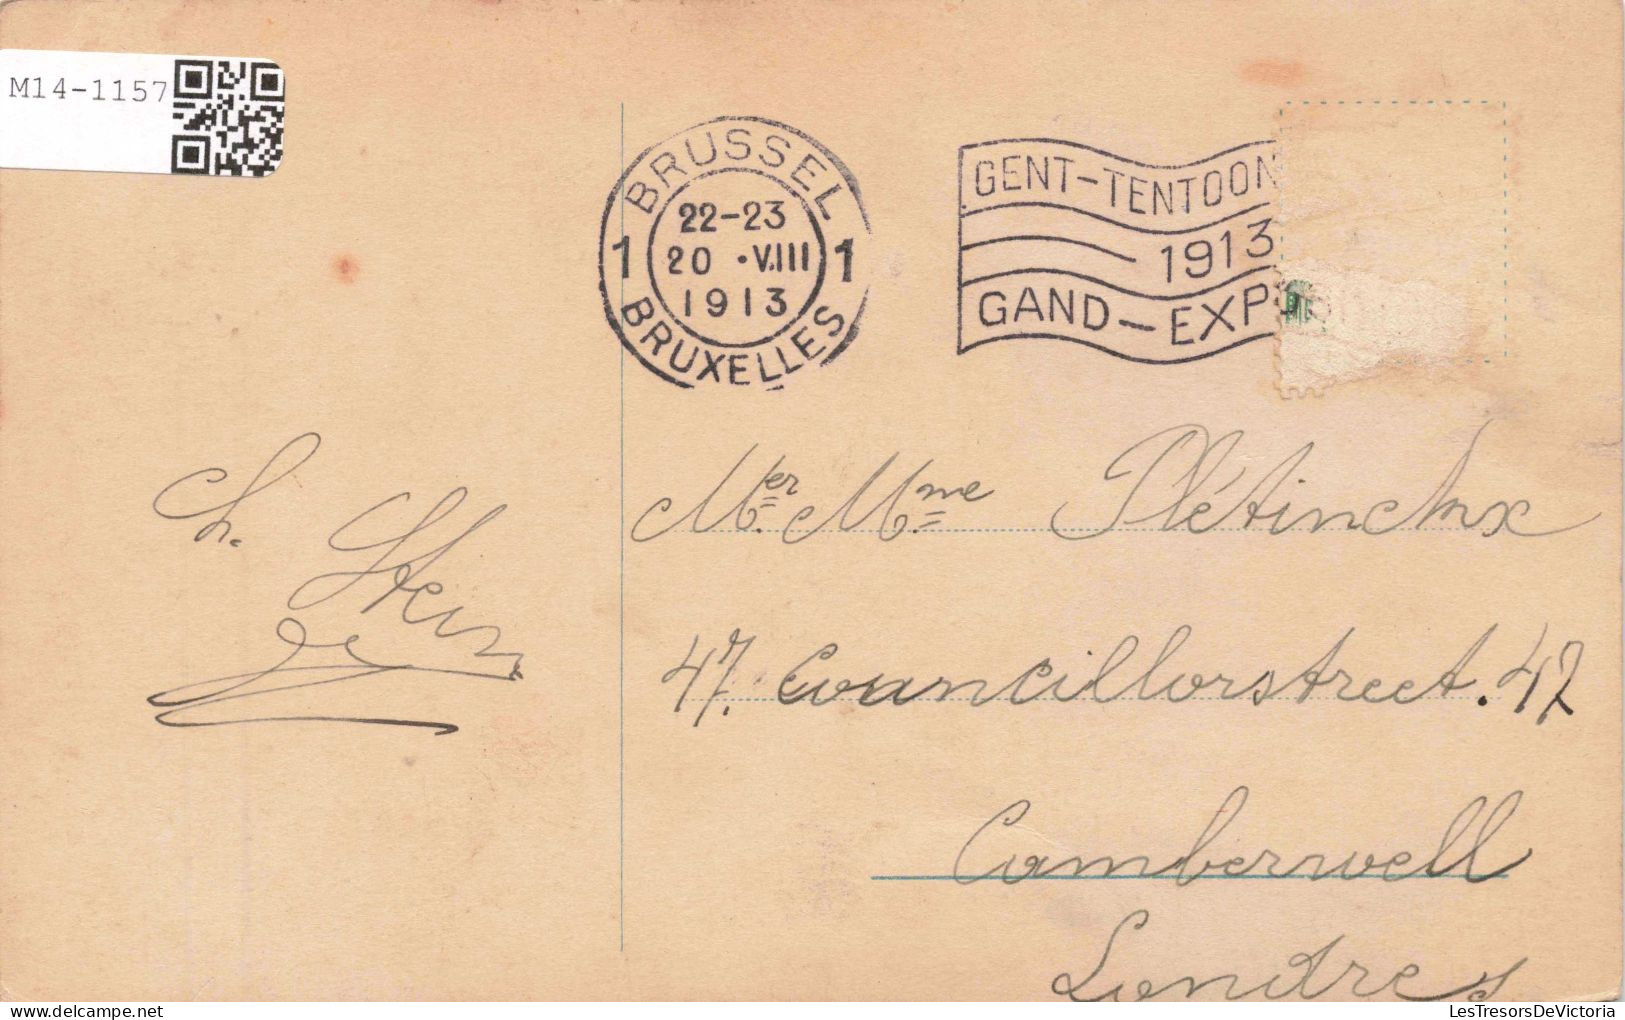 M14-1157
BRUSSEL
22-23
1 20 •VIII 1
1913
BRUXELLES
GENT-TENTOON
1913
GAND-EXPO
Ch. Stein
Mer. Mme. Plétinckx
47. Councillorstreet. 47
Camberwell
Londres
LesTresorsDeVictoria